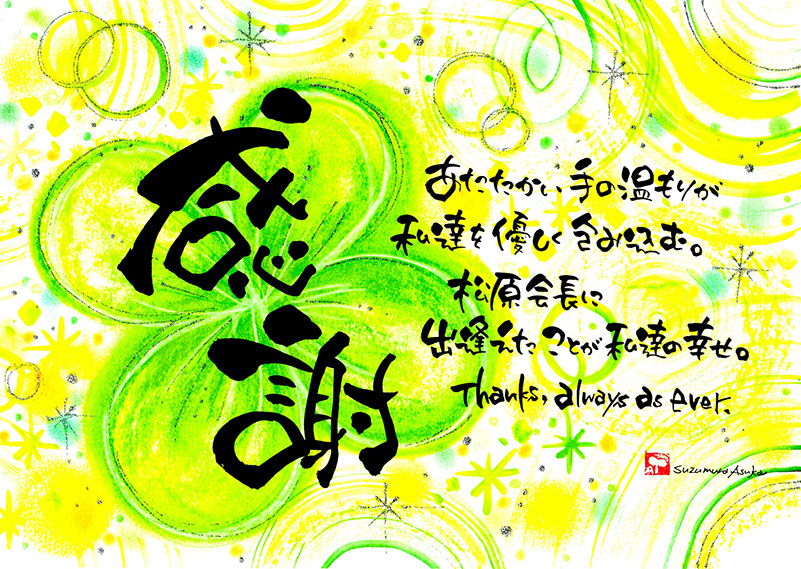 感謝
あたたかい手の温もりが
私達を優しく包み込む。
松原会長に
出逢えたことが私達の幸せ。
Thanks, always as ever.
AI
Suzumura Asuka